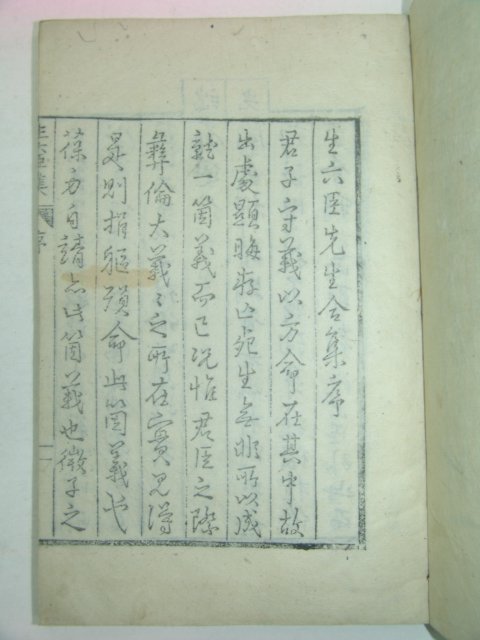 生六臣先生合集序
君子守義以方命在其中故
出處顯晦存亡死生無非所以成
就一箇義而已況惟君臣之際
彝倫大義〻之所在實見得
是則捐軀殞命此箇義也
葆身自靖亦此箇義也微子之
生六臣集 序 一